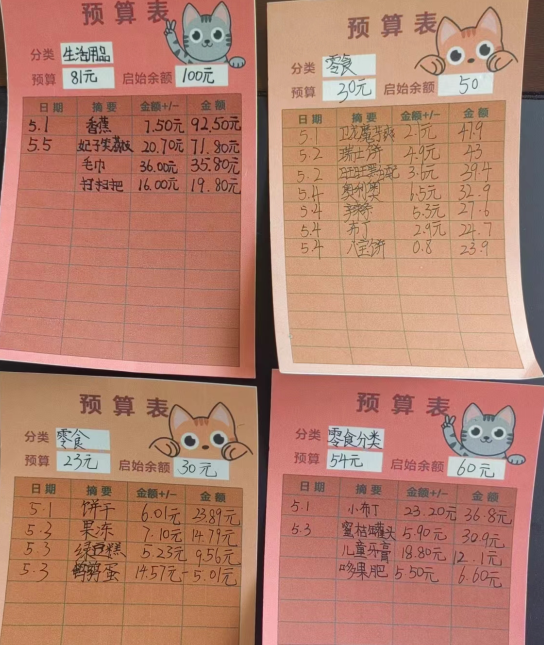 预算表
分类 生活用品
预算 81元 启始余额 100元
日期 摘要 金额+/- 金额
5.1 香蕉 7.50元 92.50元
5.5 妃子笑荔枝 20.70元 71.80元
毛巾 36.00元 35.80元
扫把 16.00元 19.80元
预算表
分类 零食
预算 30元 启始余额 50
日期 摘要 金额+/- 金额
5.1 卫龙魔芋爽 2.1元 47.9
5.2 瑞士饼 4.9元 43
5.2 3.6元 39.4
5.4 奥利奥 6.5元 32.9
5.4 5.3元 27.6
5.4 布丁 2.9元 24.7
5.4 八宝饼 0.8 23.9
预算表
分类 零食
预算 23元 启始余额 30元
日期 摘要 金额+/- 金额
5.1 饼干 6.01元 23.89元
5.3 果冻 7.10元 14.79元
5.3 绿豆糕 5.23元 9.56元
5.3 鹌鹑蛋 14.57元 -5.01元
预算表
分类 零食分类
预算 54元 启始余额 60元
日期 摘要 金额+/- 金额
5.1 小布丁 23.20元 36.8元
5.3 蜜桔罐头 5.90元 30.9元
儿童牙膏 18.80元 12.1元
哆果肥 5.50元 6.60元